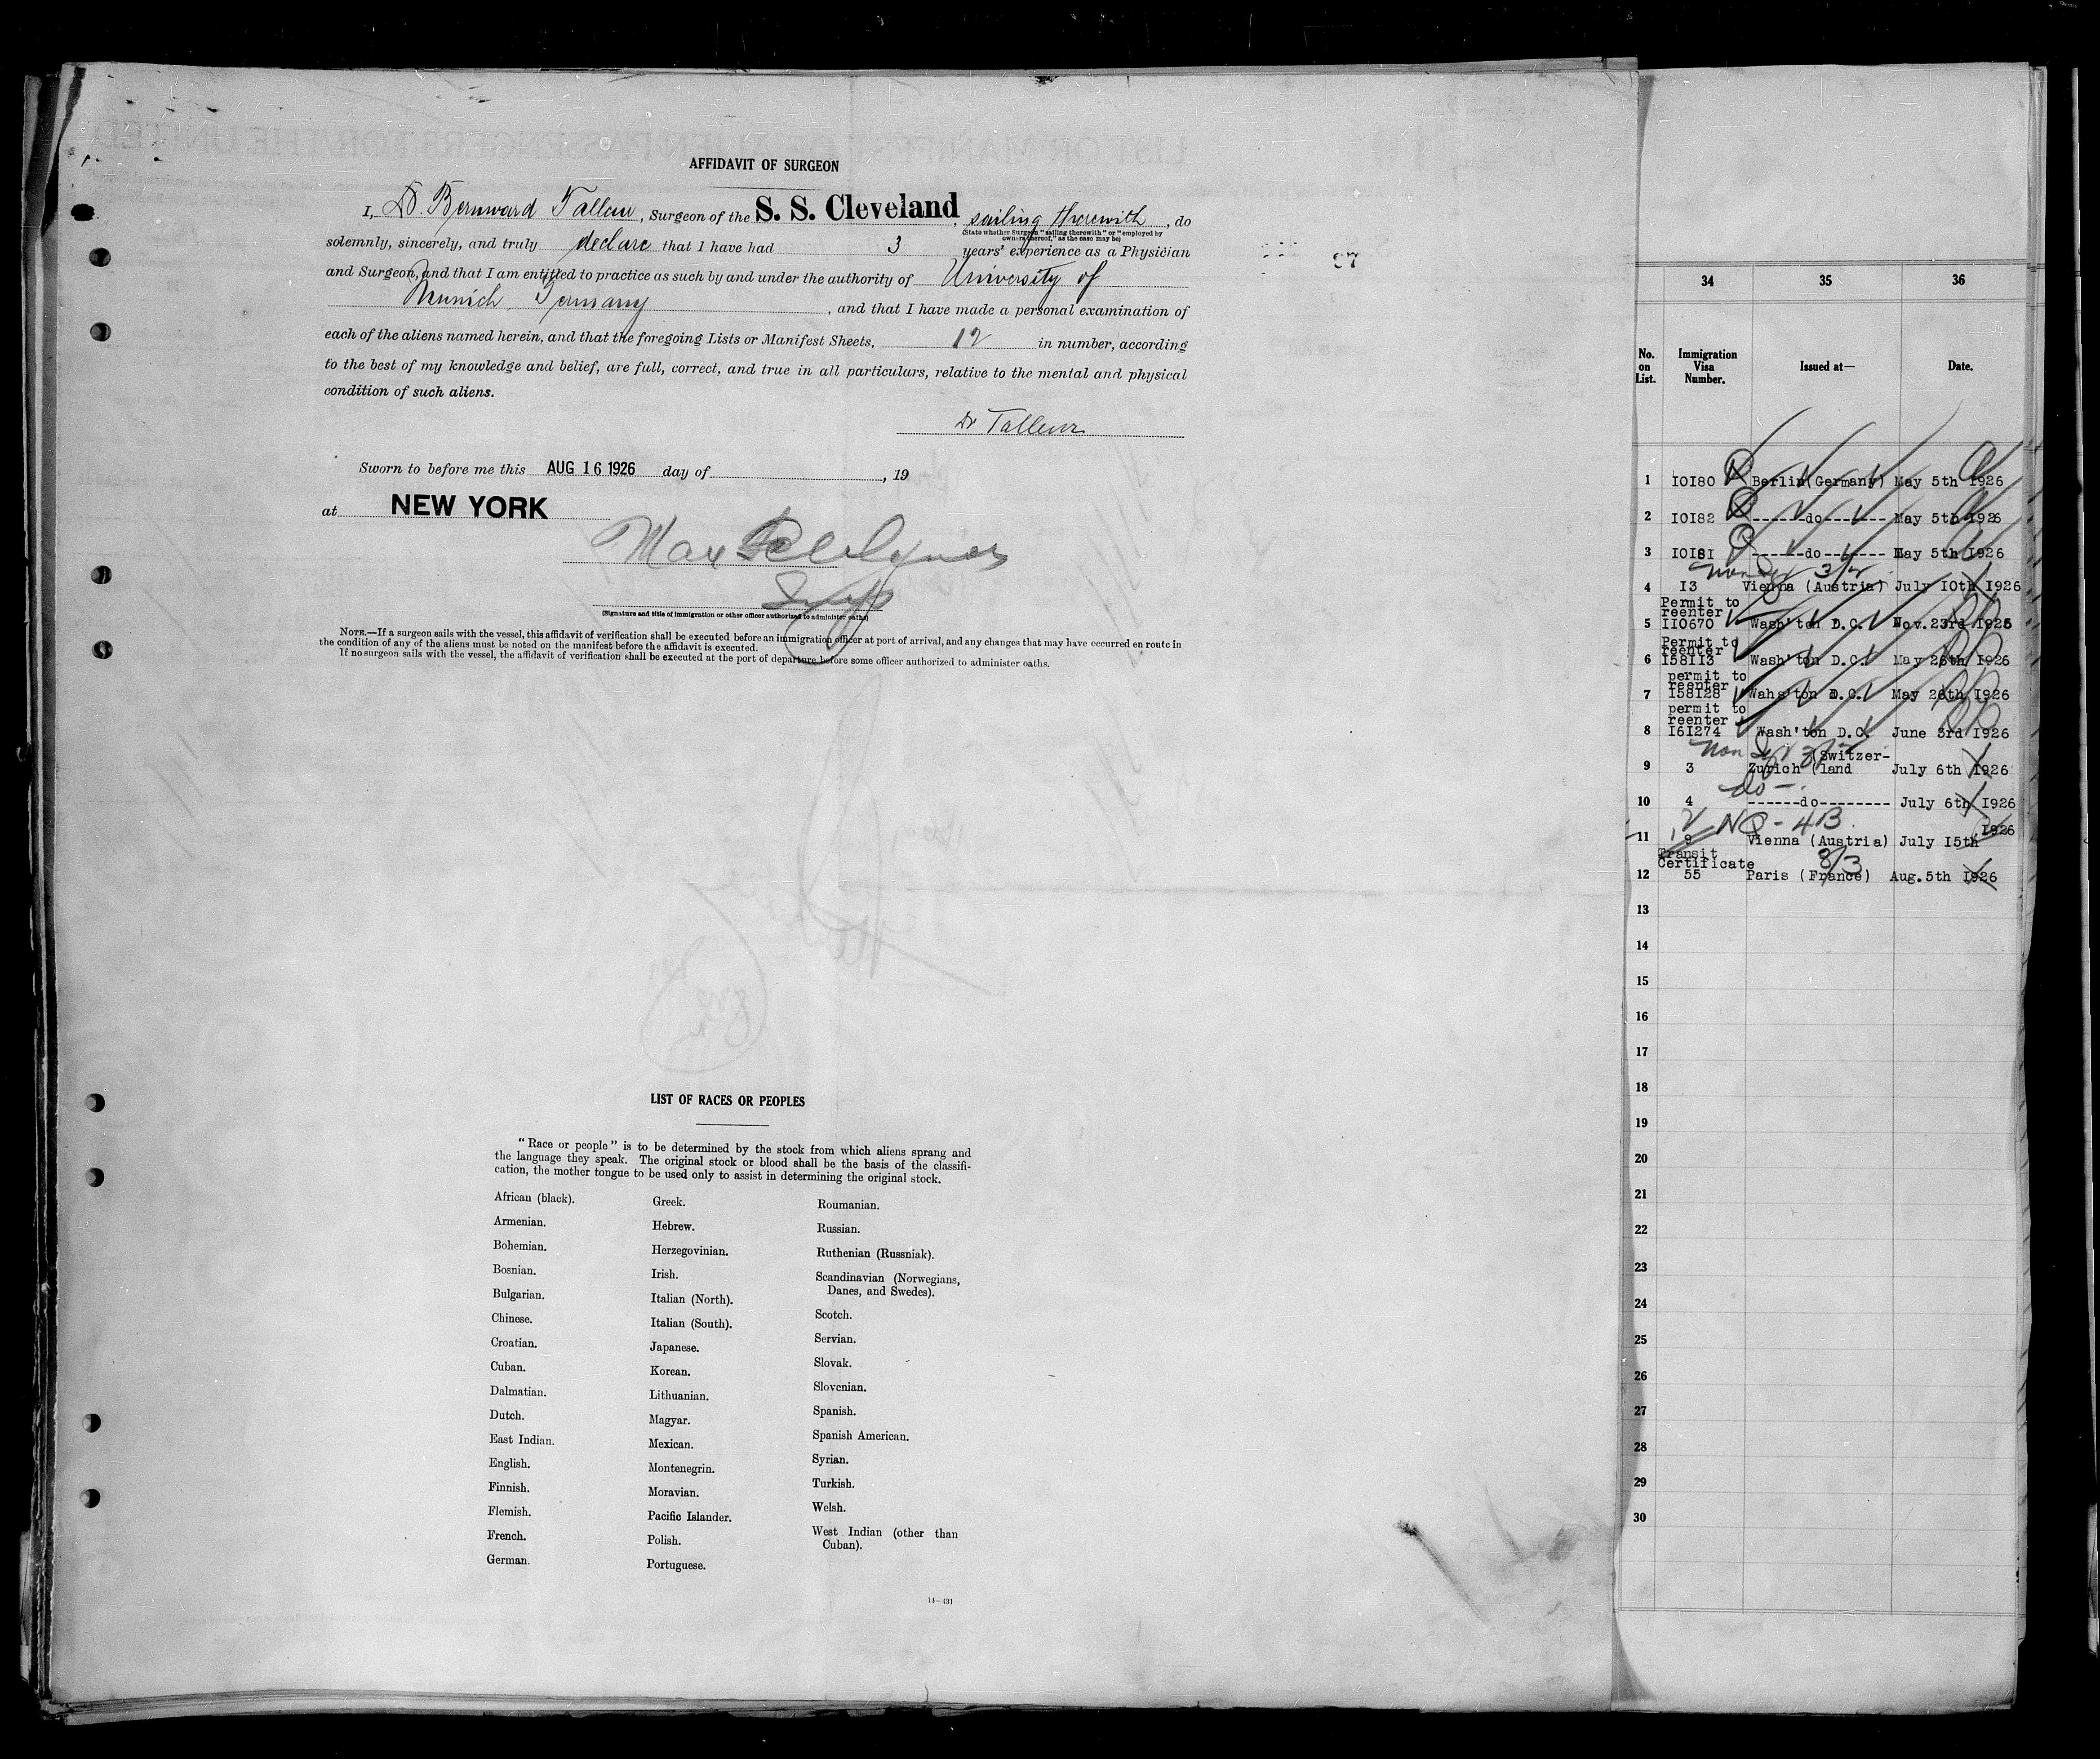 AFFIDAVIT OF SURGEON
I, Dr. Bernward Tallen, Surgeon of the S. S. Cleveland, sailing therewith, do
(State whether Surgeon "sailing therewith" or "employed by
owners thereof," as the case may be)
solemnly, sincerely, and truly declare that I have had 3 years' experience as a Physician
and Surgeon, and that I am entitled to practice as such by and under the authority of University of
Munich, Germany, and that I have made a personal examination of
each of the aliens named herein, and that the foregoing Lists or Manifest Sheets, 12 in number, according
to the best of my knowledge and belief, are full, correct, and true in all particulars, relative to the mental and physical
condition of such aliens.
Dr Tallen
Sworn to before me this AUG 16 1926 day of , 19
at NEW YORK
Max
Insp
(Signature and title of immigration or other officer authorized to administer oaths)
NOTE.—If a surgeon sails with the vessel, this affidavit of verification shall be executed before an immigration officer at port of arrival, and any changes that may have occurred en route in
the condition of any of the aliens must be noted on the manifest before the affidavit is executed.
If no surgeon sails with the vessel, the affidavit of verification shall be executed at the port of departure before some officer authorized to administer oaths.
LIST OF RACES OR PEOPLES
"Race or people" is to be determined by the stock from which aliens sprang and
the language they speak. The original stock or blood shall be the basis of the classifi-
cation, the mother tongue to be used only to assist in determining the original stock.
African (black).
Armenian.
Bohemian.
Bosnian.
Bulgarian.
Chinese.
Croatian.
Cuban.
Dalmatian.
Dutch.
East Indian.
English.
Finnish.
Flemish.
French.
German.
Greek.
Hebrew.
Herzegovinian.
Irish.
Italian (North).
Italian (South).
Japanese.
Korean.
Lithuanian.
Magyar.
Mexican.
Montenegrin.
Moravian.
Pacific Islander.
Polish.
Portuguese.
Roumanian.
Russian.
Ruthenian (Russniak).
Scandinavian (Norwegians,
Danes, and Swedes).
Scotch.
Servian.
Slovak.
Slovenian.
Spanish.
Spanish American.
Syrian.
Turkish.
Welsh.
West Indian (other than
Cuban).
14—431
34 35 36
No. on List. Immigration Visa Number. Issued at— Date.
1 10180 Berlin(Germany) May 5th 1926
2 10182 ------do------- May 5th 1926
3 10181 ------do------- May 5th 1926
Non 3/2
4 13 Vienna (Austria) July 10th 1926
Permit to
reenter
5 110670 Wash'ton D.C. Nov.23rd 1925
Permit to
reenter
6 158113 Wash'ton D.C. May 26th 1926
permit to
reenter
7 158128 Wahs'ton D.C. May 26th 1926
permit to
reenter
8 161274 Wash'ton D.C. June 3rd 1926
Non 3/2
9 3 Zurich (Switzer-
land July 6th 1926
do -
10 4 ------do-------- July 6th 1926
NQ - 4B
11 9 Vienna (Austria) July 15th 1926
Transit
Certificate 3/3
12 55 Paris (France) Aug.5th 1926
13
14
15
16
17
18
19
20
21
22
23
24
25
26
27
28
29
30